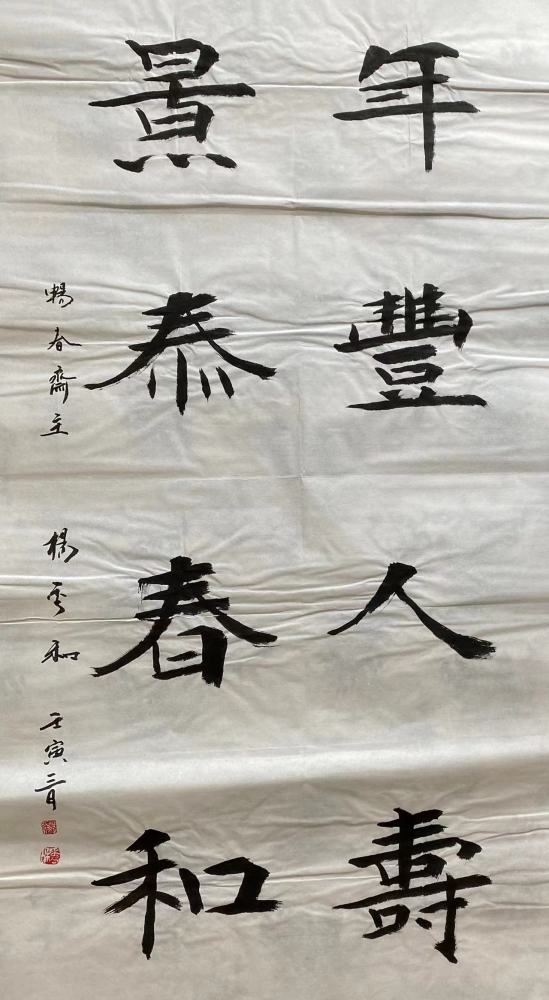 年豐人壽
景泰春和
暢春齋主 楊云和 壬寅三月